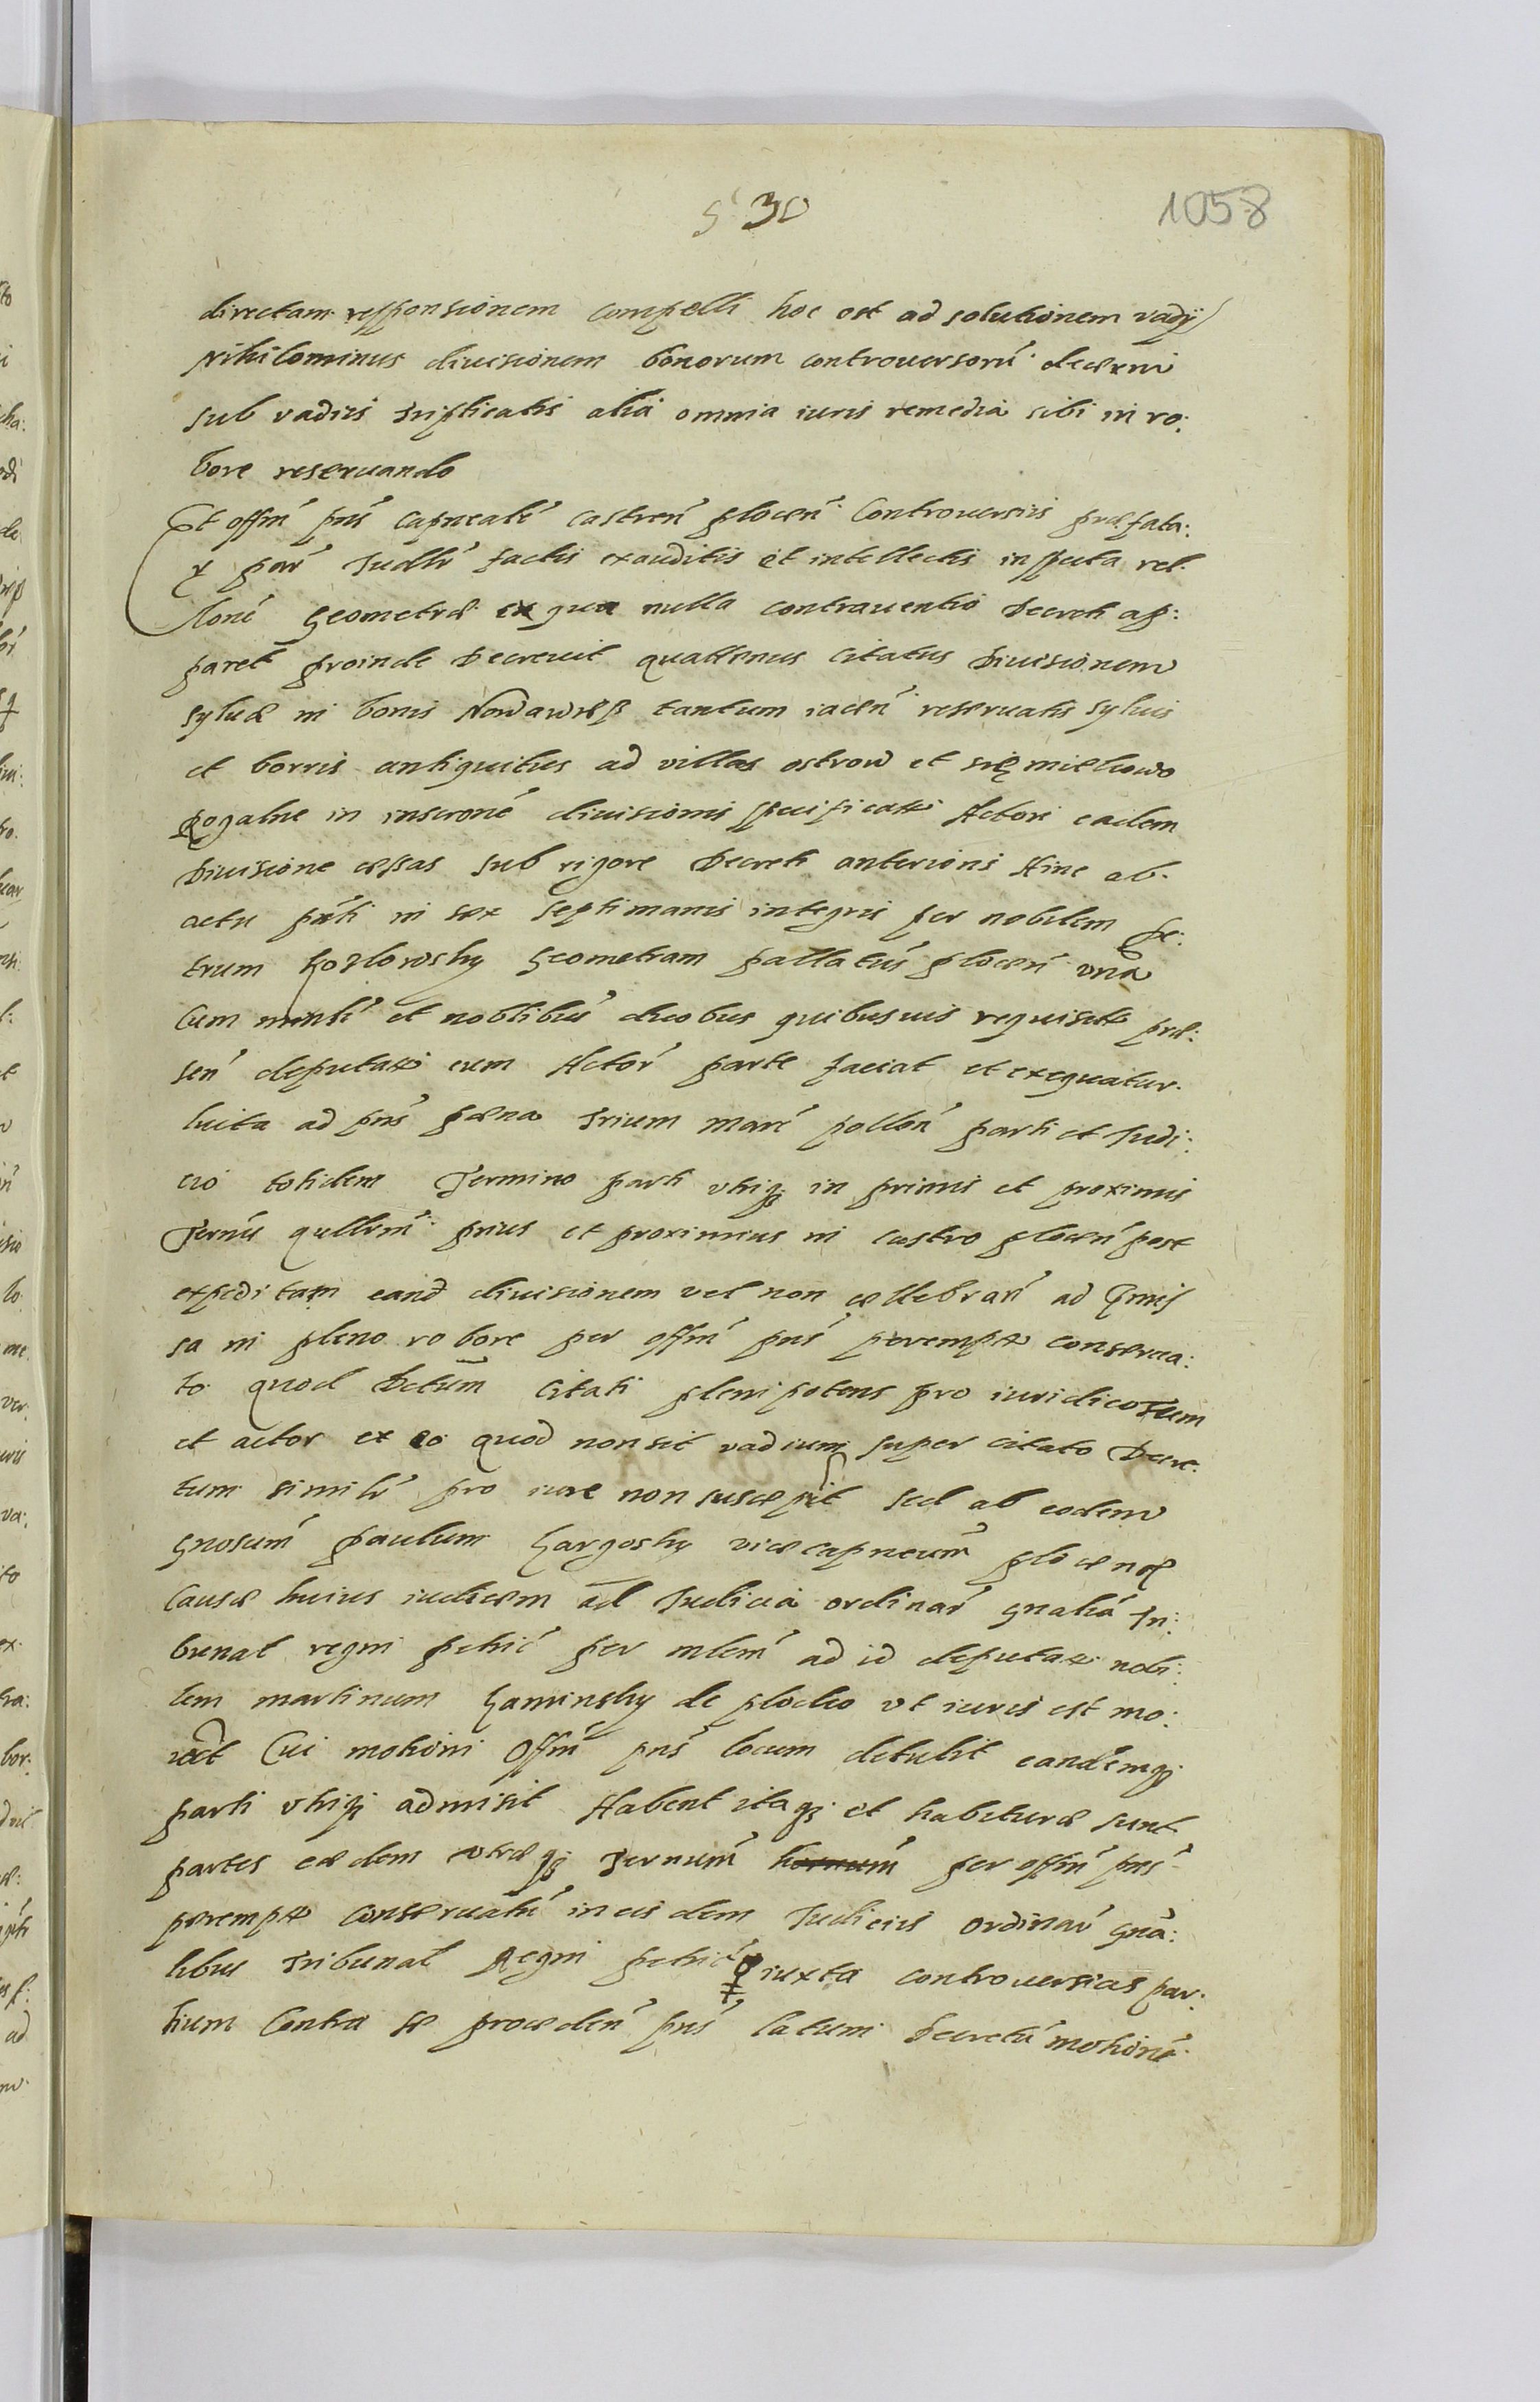 530
1058
directam responsionem compelli hoc est ad solutionem vadij
Nihilominus diuisionem bonorum controuersorū decerni
sub vadiis triplicatis alia omnia iuris remedia sibi in ro:
bore reseruando
Et offm pns capneale castren plocen Controuersiis præfata:
r par Iudlr factis exauditis et intellectis inspecta rel
lone Geometræ ex qua nulla contrauentio Decreti ap:
paret proinde Decreuit quattenus Citatus Diuisionem
syluæ in bonis Nowawies tantum iacen reseruatis syluis
et borris antiquitus ad villas ostrow et
Rogalne in inscrone diuisionis specificatis Actori eadem
Diuisione cessas sub rigore Decreti anterioris Hinc ab
actu pnti in sex septimanis integris per nobilem Pe:
trum Kozlowsky Geometram pallatūs plocen vna
Cum mintli et noblibus duobus quibusuis requisit præ:
sen deputat cum Actor parte faciat et exequatur
luita ad pns pæna Trium marc pollon parti et Iudi:
cio totidem Termino parti vtriq3 in primis et proximis
Ternis qullrm prius et proximius in castro plocen post
expeditam eand diuisionem vel non cællebran ad
sa in pleno robore per offm pns perempt conserua:
to quod Dctum Citati plenipotens pro iuridico Tum
et actor ex eo quod non sit vadium super citato Decre:
tum similr pro iure non suscepit sed ab eodem
Gnosum paulum Gargosky vicecapneum plocen
Causæ huius iudicem ad Iudicia ordinar gnalia Tri:
bunal regni petric per mlem ad id deputat nobi:
lem martinum Kaminsky de plocko vt iuris est mo:
uet Cui motioni Offm pns locum detulit eandemq3
parti vtriq3 admisit Habent itaq3 et habituræ sunt
partes eædem vtræq3 Ternum per offm pns
perempt conseruatu in eisdem Iudiciis ordinar gna:
libus Tribunal Regni petric iuxta controuersias par:
tium Contra se proceden pns latum Decretū motione